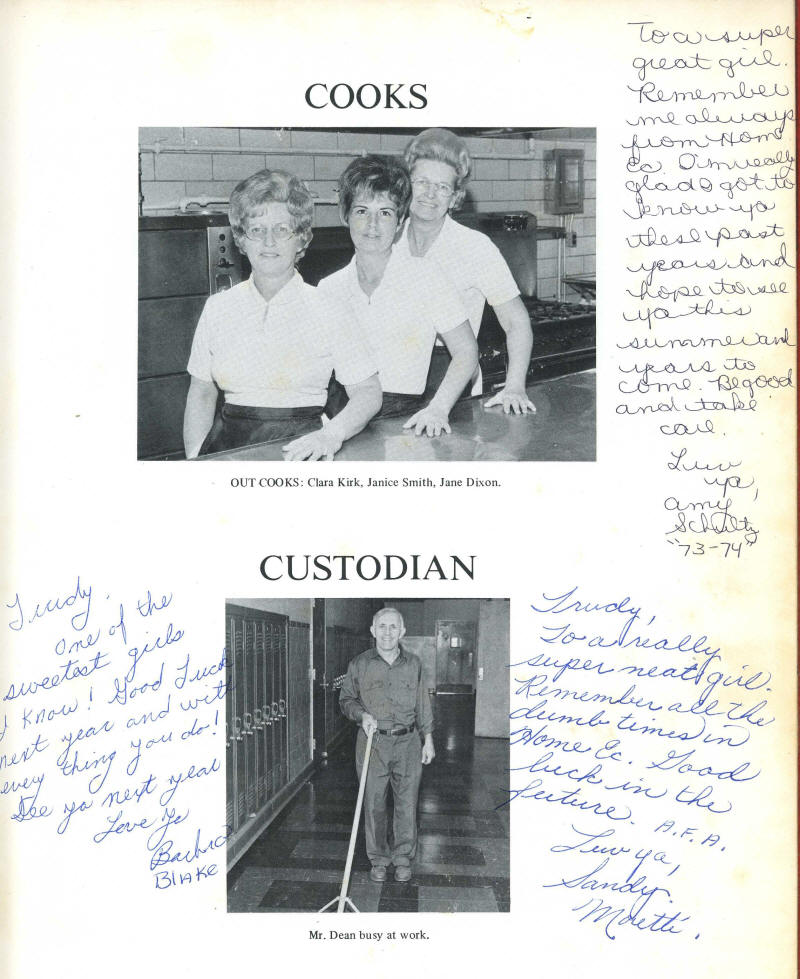 COOKS
To a super
great girl.
Remember
me always
from Home
Ec. I'm really
glad I got to
know ya
these past
years and
hope to see
ya this
summer and
years to
come. Be good
and take
care.
Luv
ya,
Amy
Schultz
"73-74"
OUT COOKS: Clara Kirk, Janice Smith, Jane Dixon.
CUSTODIAN
Trudy,
One of the
sweetest girls
I know! Good Luck
next year and with
every thing you do!
See ya next year
Love Ya
Barbra
Blake
Trudy,
To a really
super neat girl.
Remember all the
dumb times in
Home Ec. Good
luck in the
future. A.F.A.
Luv ya,
Sandy
Moretti.
Mr. Dean busy at work.